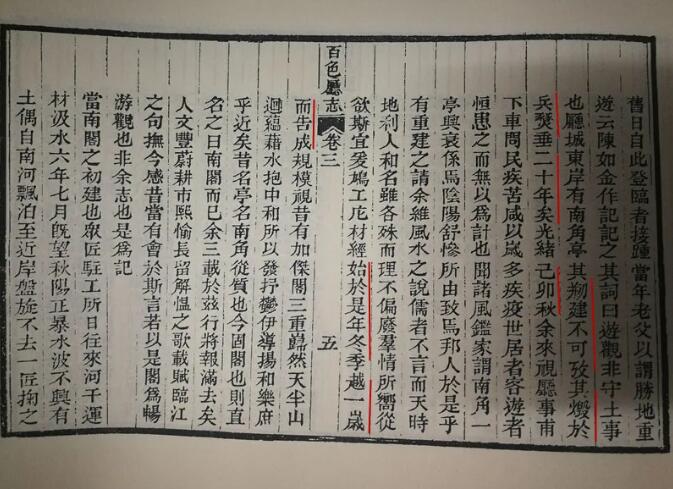 舊日自此登臨者接踵當年老父以謂勝地重
遊云陳如金作記記之其詞曰遊觀非守土事
也廳城東岸有南角亭其剏建不可攷其燬於
兵燹垂二十年矣光緒己卯秋余來視廳事甫
下車問民疾苦咸以歲多疾疫世居者客遊者
恒患之而無以爲計也聞諸風鑑家謂南角一
亭興衰係焉陰陽舒慘所由致焉邦人於是乎
有重建之請余維風水之說儒者不言而天時
地利人和名雖各殊而理不偏廢羣情所嚮從
欲斯宜爰鳩工庀材經始於是年冬季越一歲
百色廳志 卷三 五
而告成規模視昔有加傑閣三重巋然天半山
迴蘊藉水抱中和所以發抒鬱伊導揚和樂庶
乎近矣昔名亭名南角從質也今固閣也則直
名之曰南閣而已余三載於茲行將報滿去矣
人文豐蔚耕市熙愉長留解慍之歌載賦臨江
之句撫今感昔當有會於斯言若以是閣爲暢
游觀也非余志也是爲記
當南閣之初建也眾匠駐工所日往來河干運
材汲水六年七月旣望秋陽正暴水波不興有
土偶自南河飄泊至近岸盤旋不去一匠掬之